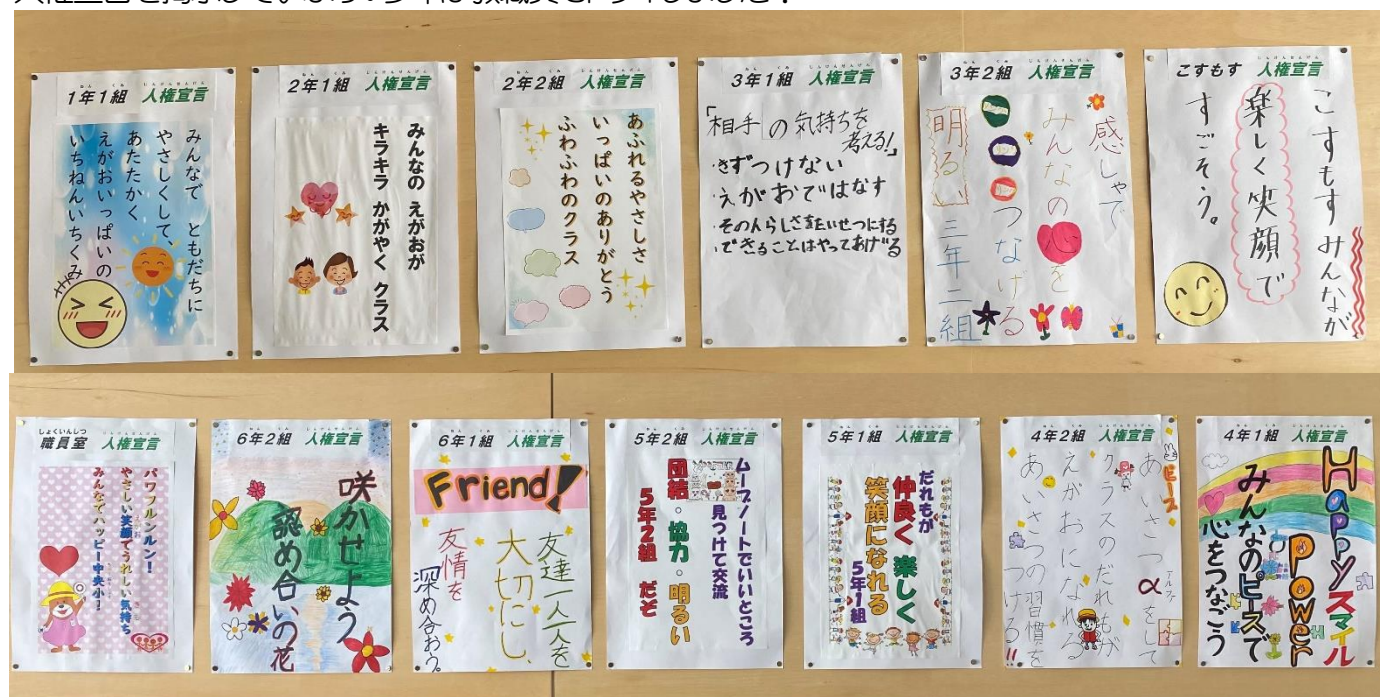 1年1組 人権宣言
みんなで ともだちに
やさしくして、
あたたかく
えがおいっぱいの
いちねんいちくみ
2年1組 人権宣言
みんなの えがおが
キラキラ かがやく クラス
2年2組 人権宣言
あふれるやさしさ
いっぱいのありがとう
ふわふわのクラス
3年1組 人権宣言
「相手の気持ちを
考える!」
・きずつけない
・えがおではなす
・その人らしさをたいせつにする
・できることはやってあげる
3年2組 人権宣言
感しゃで
みんなの心を
つなげる
明るい三年二組
こすもす 人権宣言
こすもすみんなが
楽しく笑顔で
すごそう。
しょくいんしつ
職員室 人権宣言
パワフルンルン!
やさしい笑顔でうれしい気持ち
みんなでハッピー中央小!
6年2組 人権宣言
咲かせよう
認め合いの花
6年1組 人権宣言
Friend!
友達一人一人を
大切にし、
友情を
深め合おう。
5年2組 人権宣言
ムーブノートでいいところ
見つけて交流
団結・協力・明るい
5年2組 だぞ
5年1組 人権宣言
だれもが
仲良く 楽しく
笑顔になれる
5年1組
4年2組 人権宣言
ピース
あいさつαをして
アルファ
クラスのだれもが
えがおになれる
あいさつの習慣を
つける!!
4年1組 人権宣言
Happyスマイル
Power
みんなのピースで
心をつなごう